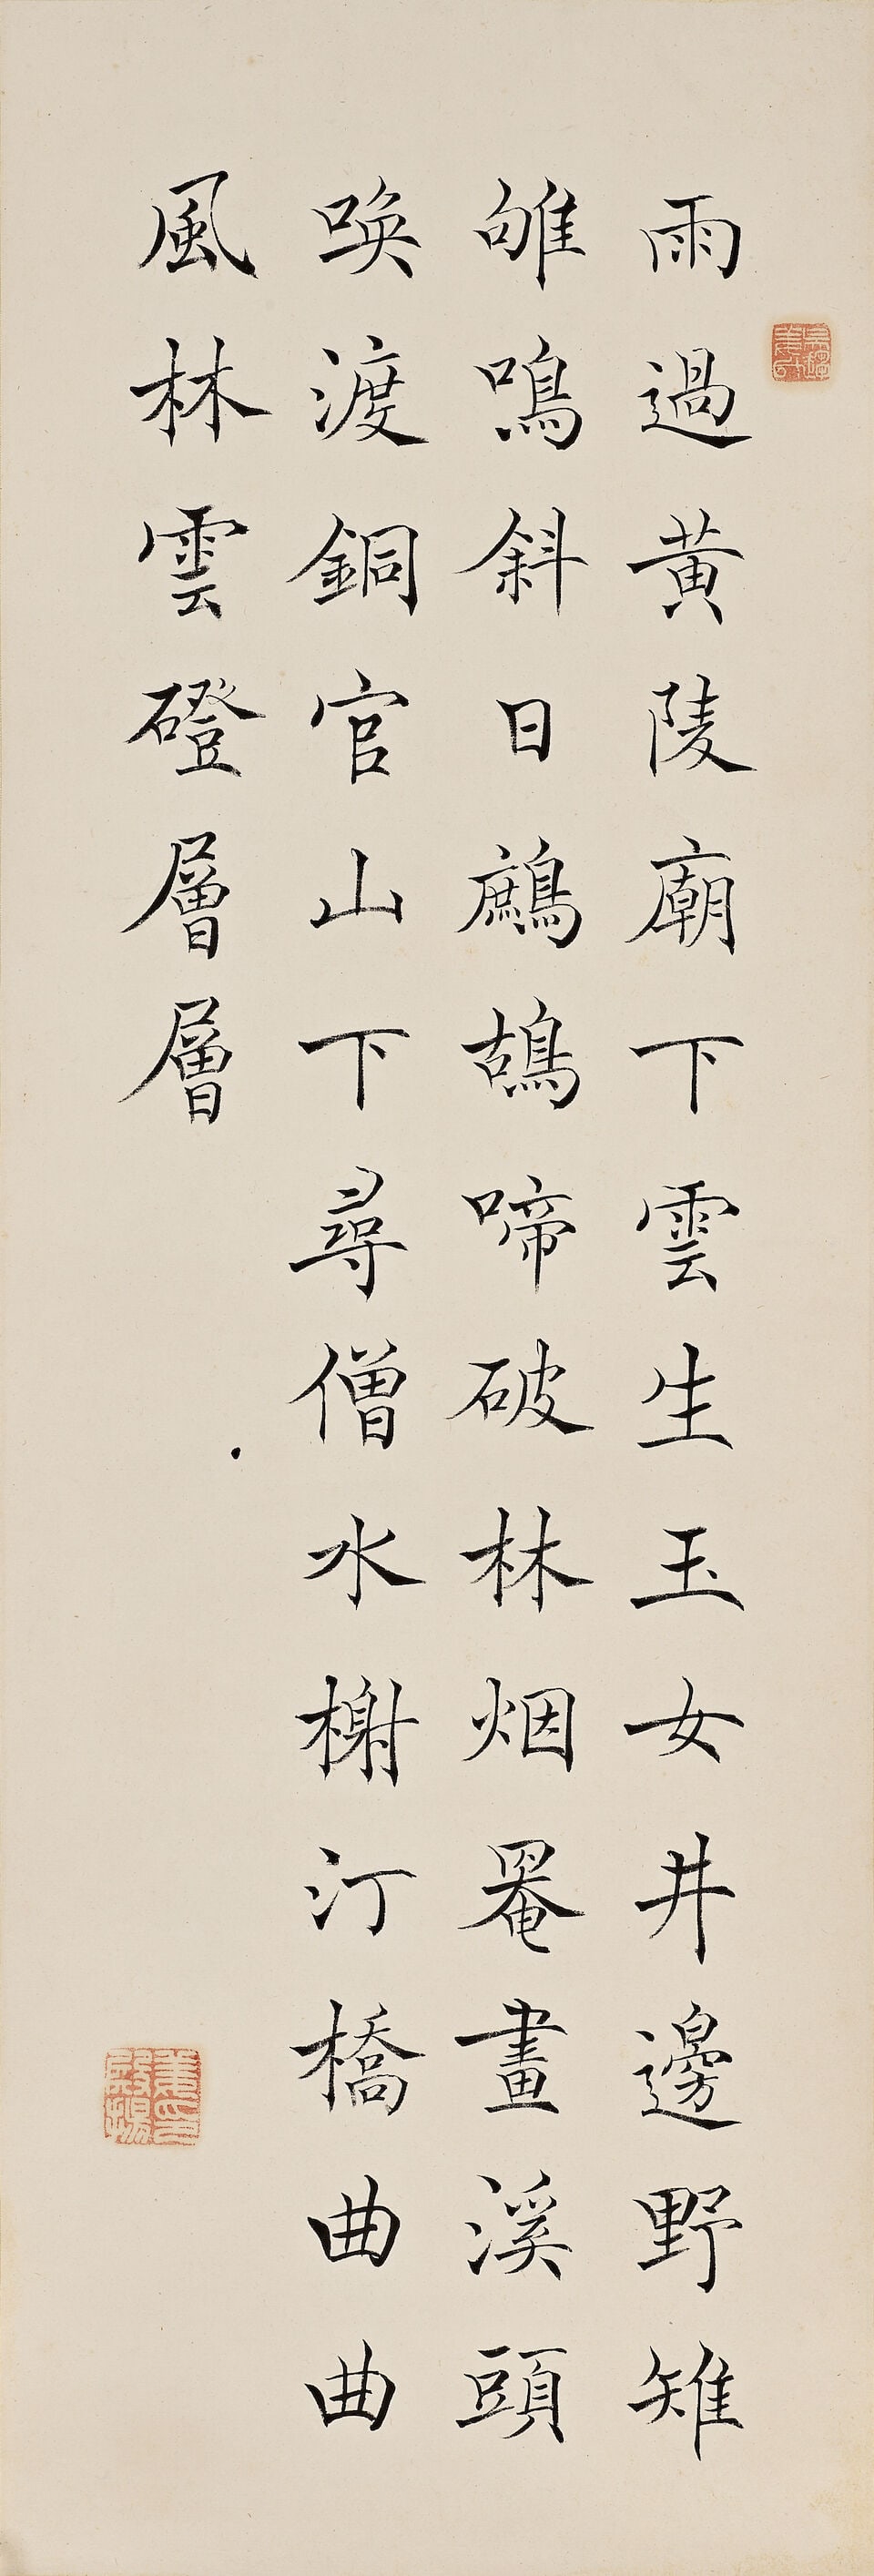 雨過黃陵廟下雲生玉女井邊野雉
雊鳴斜日鷓鴣啼破林烟罨畫溪頭
喚渡銅官山下尋僧水榭汀橋曲曲
風林雲磴層層